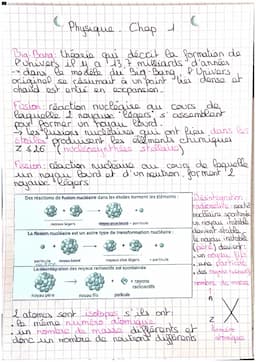 Physique. Chap 1
Big-Bang: théorie qui décrit la formation de
l'Univers il y a 13,7 milliards d'années
→ dans le modèle du Big-Bang, l'Univers
originel se résumait à un point très dense et
chaud est entré en expansion.
Fusion: réaction nucléaire au cours de
laquelle 2 noyaux "légers" s'assemblent
pour former un noyau lourd.
→ les fusions nucléaires qui ont lieu dans les
étoiles produisent les éléments chimiques
Z ≤ 26 (nucléosynthèse stellaire)
Fission: réaction nucléaire au cours de laquelle
un noyau lourd et d'un neutron, forment 2
noyaux légers
Des réactions de fusion nucléaire dans les étoiles forment les éléments :
noyaux légers
noyau plus lourd + particule
La fission nucléaire est un autre type de transformation nucléaire :
particule
noyau lourd
noyaux plus légers
+ particules
La désintégration des noyaux radioactifs est spontanée :
+ rayons
radioactifs
noyau père
noyau fils
particule
Désintégration
radioactive
nucléaire spontanée
noyau instable
devient stable.
le noyau instable
(père) devient:
. un noyau fils
. une particule
. des rayons
nombre de masse
A
X
Z
Numéro
atomique
2 atomes sont isotopes s'ils ont:
• le même numéro atomique
• un nombre de masse différents et
donc un nombre de neutrons différents